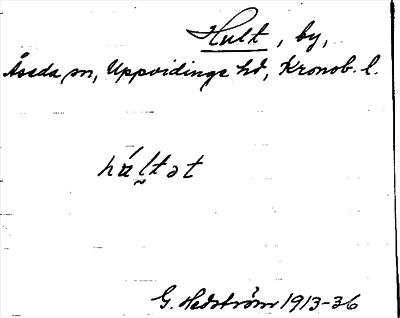 Hult, by,
Åseda sn, Uppvidinge hd, Kronob. l.
hú̵l̰tət
G. Hedström 1913-36